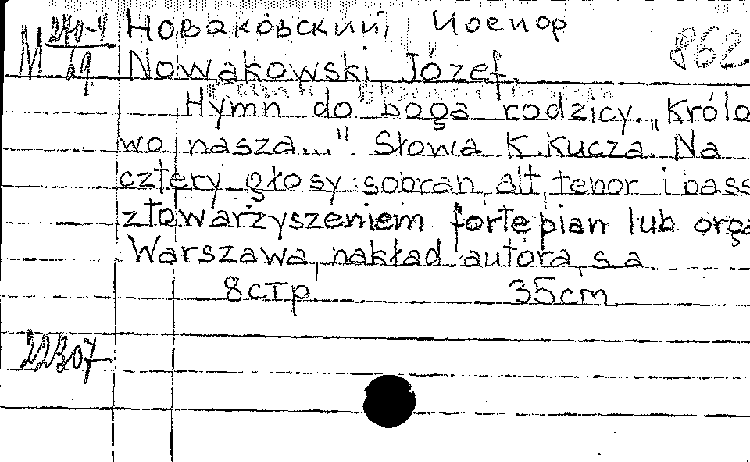 М 240-4/69
Новаковский Иосиф 862
Nowakowski Józef.
Hymn do boga rodzicy. „Królo
wo nasza..." Słowa K. Kucza. Na
cztery głosy: sobran, alt, tenor i bass
ztowarzyszeniem fortepian lub orga
Warszawa, nakład autora, s a
8 стр 35cm
22307